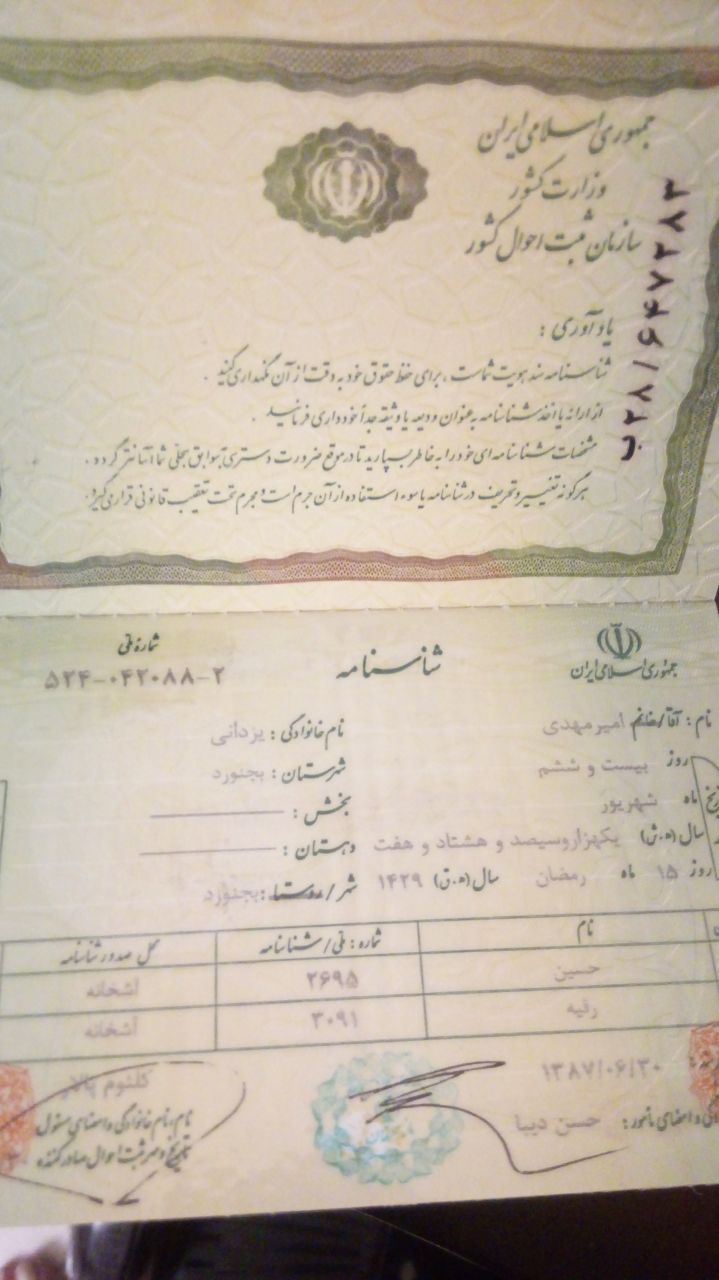 جمهوری اسلامی ایران
وزارت کشور
سازمان ثبت احوال کشور
ب۲۸/۶۴۷۲۸۳
یادآوری :
شناسنامه سند هویت شماست ، برای حفظ حقوق خود به دقت از آن نگهداری کنید .
از ارائه یا اخذ شناسنامه به عنوان ودیعه یا وثیقه جداً خودداری فرمائید .
مشخصات شناسنامه ای خود را به خاطر بسپارید تا در موقع ضرورت دسترسی به سوابق سجلی شما آسانتر گردد .
هرگونه تغییر و تحریف در شناسنامه یا سوء استفاده از آن جرم است و مجرم تحت تعقیب قانونی قرار می گیرد .
جمهوری اسلامی ایران
شناسنامه
شماره ملی
۵۲۴-۰۴۲۰۸۸-۲
نام : آقا/خانم امیرمهدی نام خانوادگی : یزدانی
روز بیست و ششم شهرستان : بجنورد
ماه شهریور بخش :
سال (ه.ش) یکهزاروسیصد و هشتاد و هفت دهستان :
روز ۱۵ ماه رمضان سال (ه.ق) ۱۴۲۹ شهر/روستا : بجنورد
نام شماره : ملی/شناسنامه محل صدور شناسنامه
حسین ۲۶۹۵ آشخانه
رقیه ۳۰۹۱ آشخانه
۱۳۸۷/۰۶/۳۰ کلثوم پالار
و امضای مأمور : حسن دیبا نام، نام خانوادگی و امضای مسئول
و مهر ثبت احوال صادرکننده